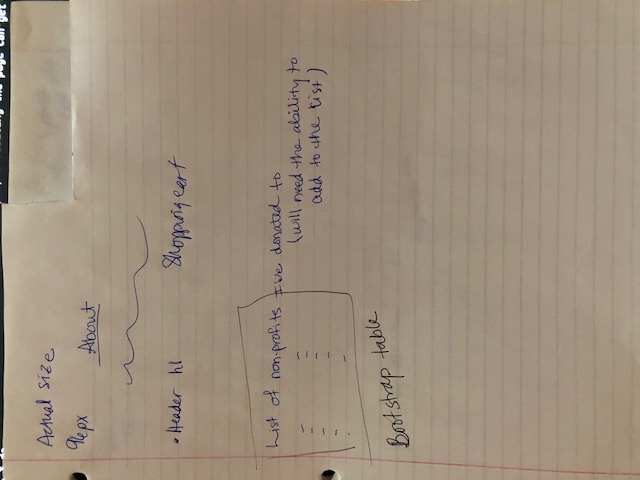 the page can get
Actual size
96px
About
• Header h1
Shopping cart
List of non-profits I've donated to
(will need the ability to
add to the list)
Bootstrap table